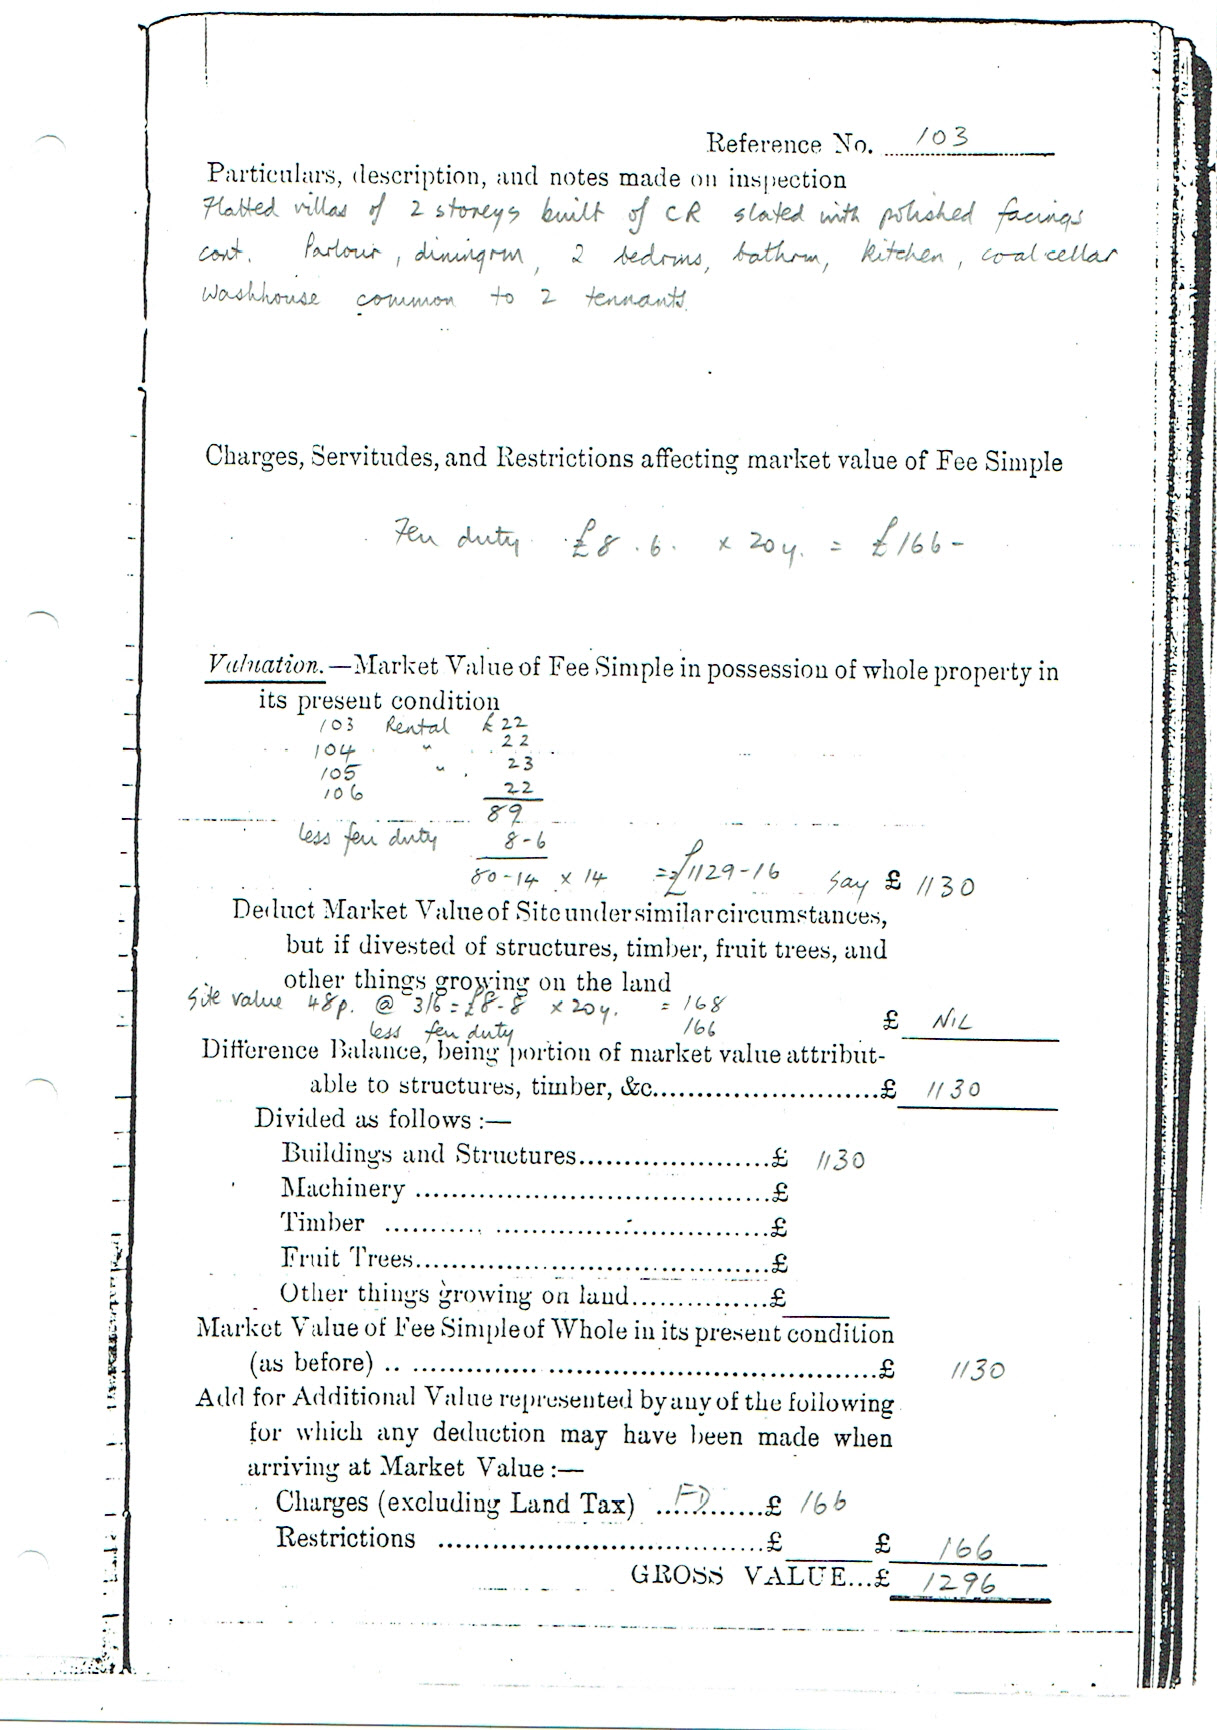 Reference No. 103
Particulars, description, and notes made on inspection
Flatted villas of 2 storeys built of CR slated with polished facings
cont. Parlour, diningrm, 2 bedrms, bathrm, Kitchen, coal cellar
Washhouse common to 2 tennants.
Charges, Servitudes, and Restrictions affecting market value of Fee Simple
Feu duty £8.6. x 20y. = £166-
Valuation.—Market Value of Fee Simple in possession of whole property in
its present condition
103 Rental £22
104 " 22
105 " 23
106 22
89
less feu duty 8-6
80-14 x 14 = £1129-16 say £ 1130
Deduct Market Value of Site under similar circumstances,
but if divested of structures, timber, fruit trees, and
other things growing on the land
Site value 48p. @ 3/6 = £8-8 x 20y. = 168
less feu duty 166 £ NIL
Difference Balance, being portion of market value attribut-
able to structures, timber, &c.........................£ 1130
Divided as follows :—
Buildings and Structures.....................£ 1130
Machinery .......................................£
Timber ...........................................£
Fruit Trees.......................................£
Other things growing on land...............£
Market Value of Fee Simple of Whole in its present condition
(as before) .....................................................£ 1130
Add for Additional Value represented by any of the following
for which any deduction may have been made when
arriving at Market Value :—
Charges (excluding Land Tax) ....FD......£ 166
Restrictions ....................................£ £ 166
GROSS VALUE...£ 1296